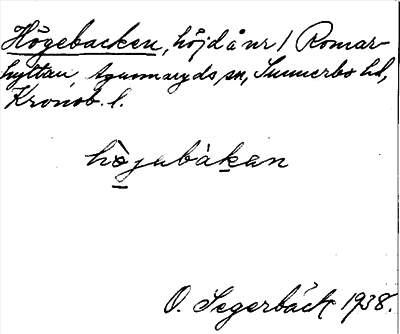 Högebacken, höjd å nr 1 Romar-
hyltan, Agunnaryds sn, Sunnerbo hd,
Kronob. l.
hö̀jubàkan
O. Segerbäck 1938.